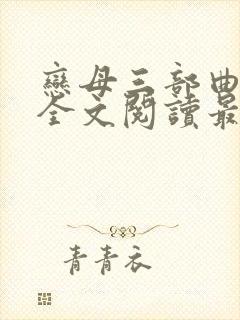 戀母三部曲
全文閱讀最
青青衣